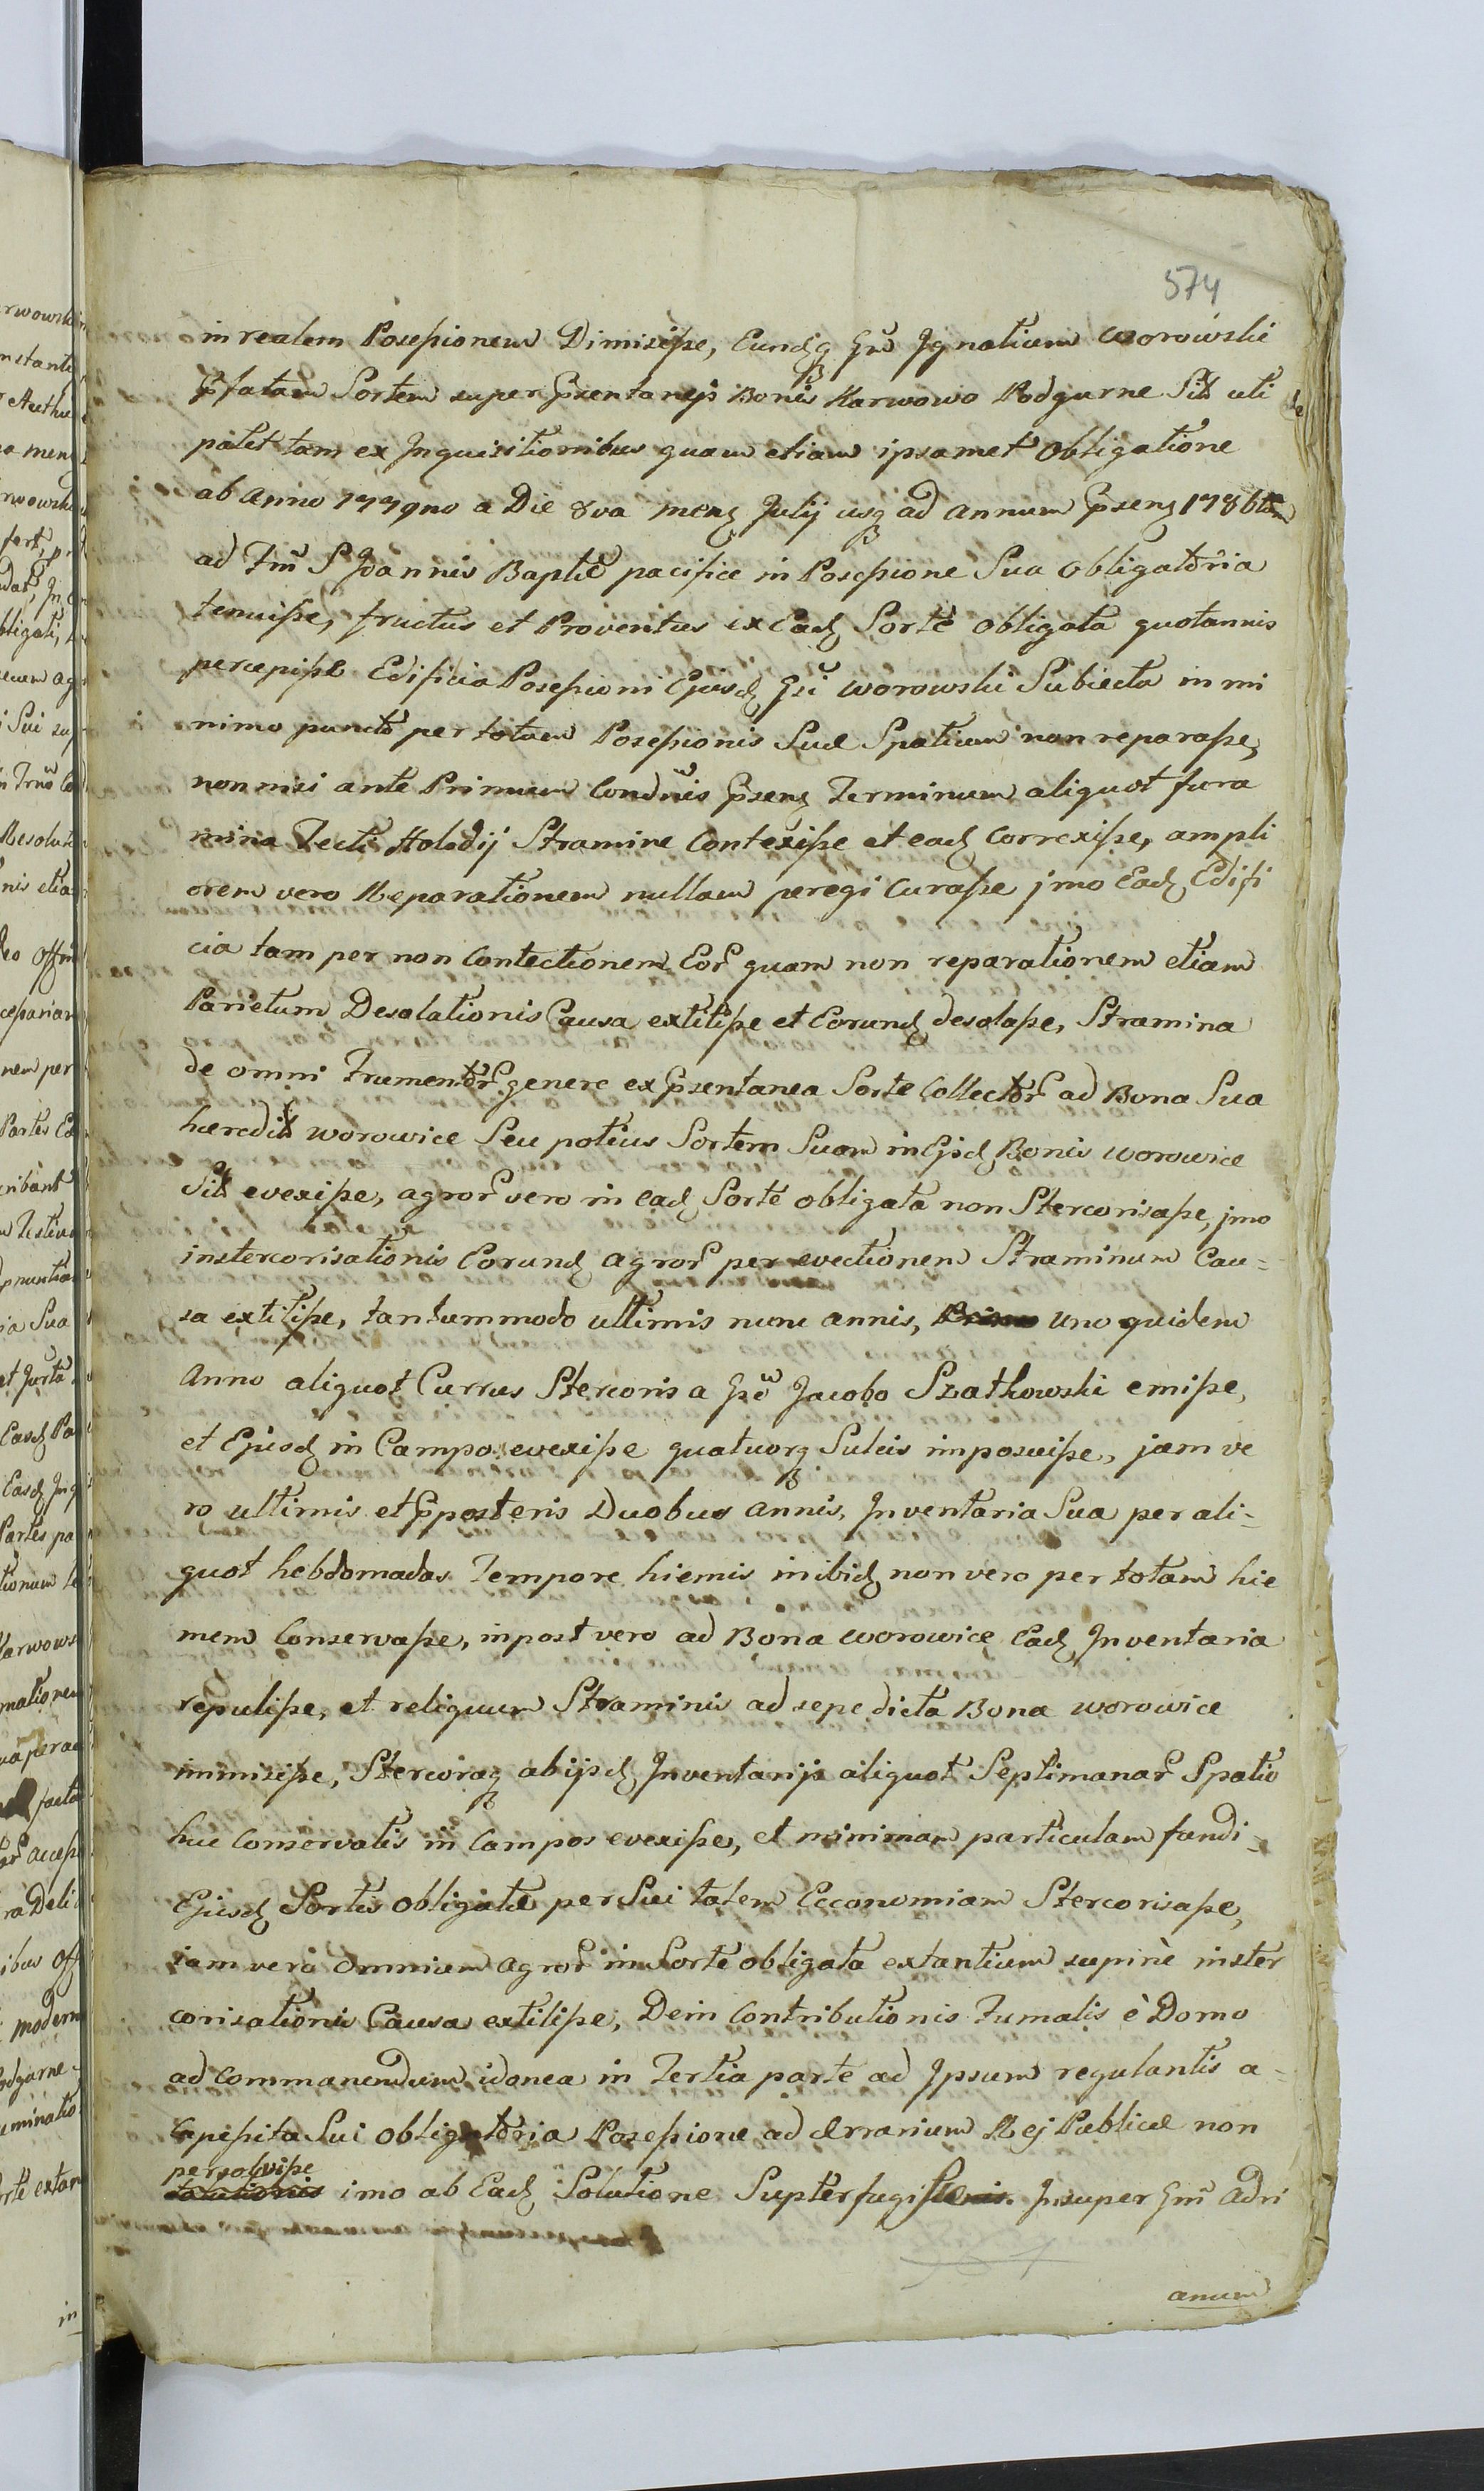 574
in realem Possessionem Dimisisse, Eundq Gm Ignatium Worowski
Pfatam Sortem super Psentanejs Bonis Karwowo Podgurne Sit uti
patet tam ex Inquisitionibus quam etiam ipsamet Obligatione
ab Anno 1779no a Die 8va mens Julij usq ad annum Psens 1786tum
ad Tm S Joannis Baptae pacifice in Possessione Sua Obligatoria
tenuisse, fructus et Proventus ex Ead Sorte obligata quotannis
percepisse Edificia Possessioni Ejusd Gsi Worowski Subiecta in mi
nimo puncto per totum Possessionis Suae Spatium non reparasse,
non nisi ante Primum Condnis Psens Terminum aliquot fora
mina Tecti Holodij Stramine Contexisse et ead correxisse, ampli
orem vero Reparationem nullam peregi Curasse jmo Ead Edifi
cia tam per non Contectionem Eor quam non reparationem etiam
Parietum Desolationis Causa extitisse et Eorund desolasse, Stramina
de omni Frumentor genere ex Psentanea Sorte Collector ad Bona Sua
haeredit Worowice Seu potius Sortem Suam in Ejsd Bonis Worowice
Sit evexisse, agror vero in ead Sorte obligata non Stercorisasse, jmo
instercorisationis Eorund agror per evectionem Straminum Cau=
sa extitisse, tantummodo ultimis nunc annis, uno quidem
Anno aliquot Currus Stercoris a Gso Jacobo Szatkowski emisse,
et Ejusd in Campos evexisse quatuorq Sulcis imposuisse, jam ve
ro ultimis et Pposteris Duobus annis, Inventaria Sua per ali=
quot hebdomadas Tempore hiemis inibid non vero per totam hie
mem Conservasse, inpost vero ad Bona Worowice Ead Inventaria
repulisse, et reliquum Straminis ad sepe dicta Bona Worowice
immisisse, Stercoraq ab ijsd Inventarijs aliquot Septimanar Spatio
huc Conservatis in Campos evexisse, et minimam particulam fundi=
Ejusd Sortis obligatae per Sui talem Ecconomiam Stercorisasse,
jam vero omnium agror in Sorte obligata extantium supinè inster
corisationis Causa extitisse, Dein Contributionis Fumalis è Domo
ad Commanendum idonea in Tertia parte ad Ipsum regulantis a=
Capessita Sui obligatoria Possessione ad Aerrarium Rej Publicae non
persolvisse
imo ab Ead Solutione Supterfugisse Insuper Gm Adri
anum